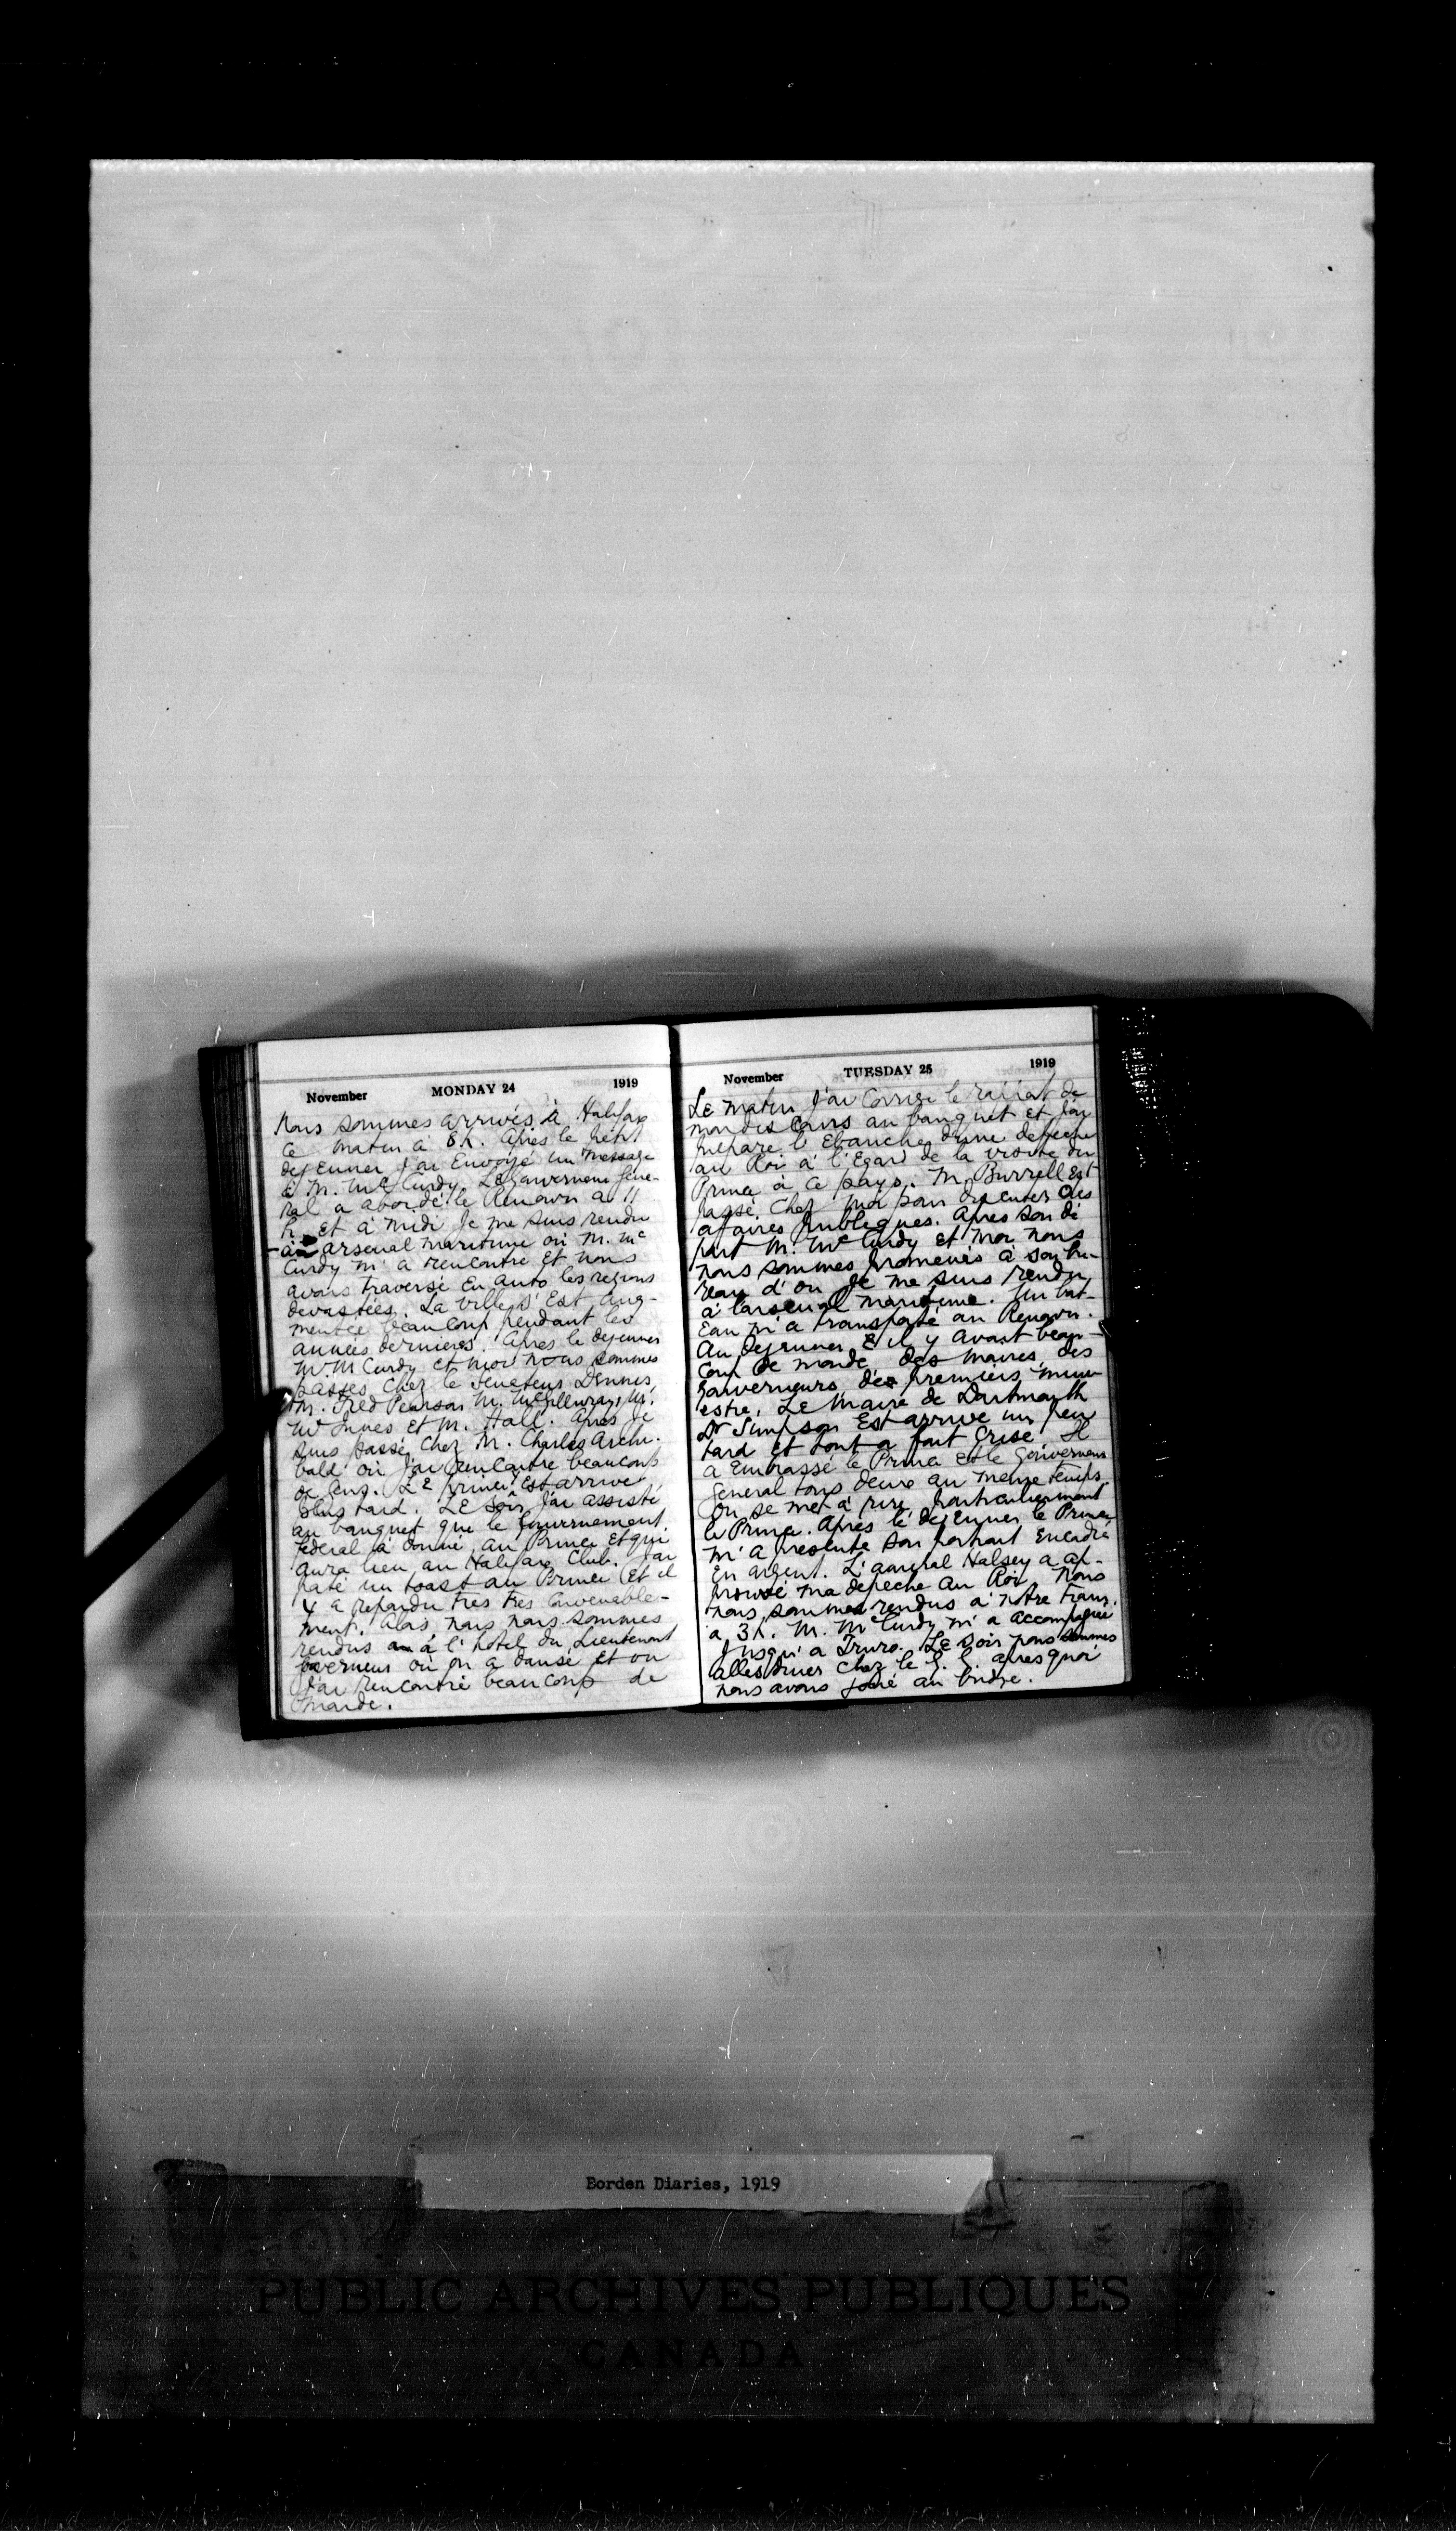 November MONDAY 24 1919
Nous sommes arrivés à Halifax
ce matin à 8h. Après le petit
dejeuner j'ai Envoyé un message
à M. McCurdy. Le gouverneur Géné-
ral a abordé le Renown à 11
h. et à midi je me suis rendu
arsenal maritime où M. Mc
Curdy m'a rencontré et nous
avons traversé en auto les regions
devastées. La ville s'est aug-
mentée beaucoup pendant les
années dernieres. Après le dejeuner
M. McCurdy et moi nous sommes
passés chez le senateur Dennis,
M. Fred Pearson M. McGillivray, M.
McInnes et M. Hall. Après je
suis passé chez M. Charles Archi-
bald où j'ai rencontré beaucoup
de gens. Le prince est arrivé
plus tard. Le soir j'ai assisté
au banquet que le gouvernement
féderal a donné au Prince et qui
aura lieu au Halifax Club. J'ai
un toast au Prince et il
y a repondu très très convenable-
ment. Alors, nous nous sommes
rendus à l'hotel du Lieutenant
Gouverneur où on a dansé et où
j'ai rencontré beaucoup de
monde.
November TUESDAY 25 1919
Le matin j'ai corrigé le rapport de
mon discours au banquet et j'ai
préparé l'Ebauche d'une depeche
au Roi à l'Egard de la visite du
Prince à ce pays. M. Burrell est
passé chez moi pour discuter des
affaires publiques. Apres son dé
part M. McCurdy et moi nous
nous sommes promenés à son bu-
reau d'ou je me suis rendu
à l'arsenal maritime. Un bat-
eau m'a transporté au Renown.
Au dejeuner il y avait beau-
coup de monde des maires, des
gouverneurs des premiers mini-
estre. Le Maire de Dartmouth
Dr Simpson est arrivé un peu
tard et tout a fait Grise. Il
a Embrassé le Prince et le Gouverneur
General tous deux au meme temps.
On se met à rire particulierment
le Prince. Apres le dejeuner le Prince
m'a presenté son portrait Encadré
en argent. L'amiral Halsey a ap-
prouvé ma depeche au Roi. Nous
nous sommes rendus à notre train
à 3h. M. McCurdy m'a accompagné
jusqu'a Truro. Le soir nous sommes
allés diner chez le G. G. apres quoi
nous avons joué au bridge.
Borden Diaries, 1919
PUBLIC ARCHIVES PUBLIQUES
CANADA